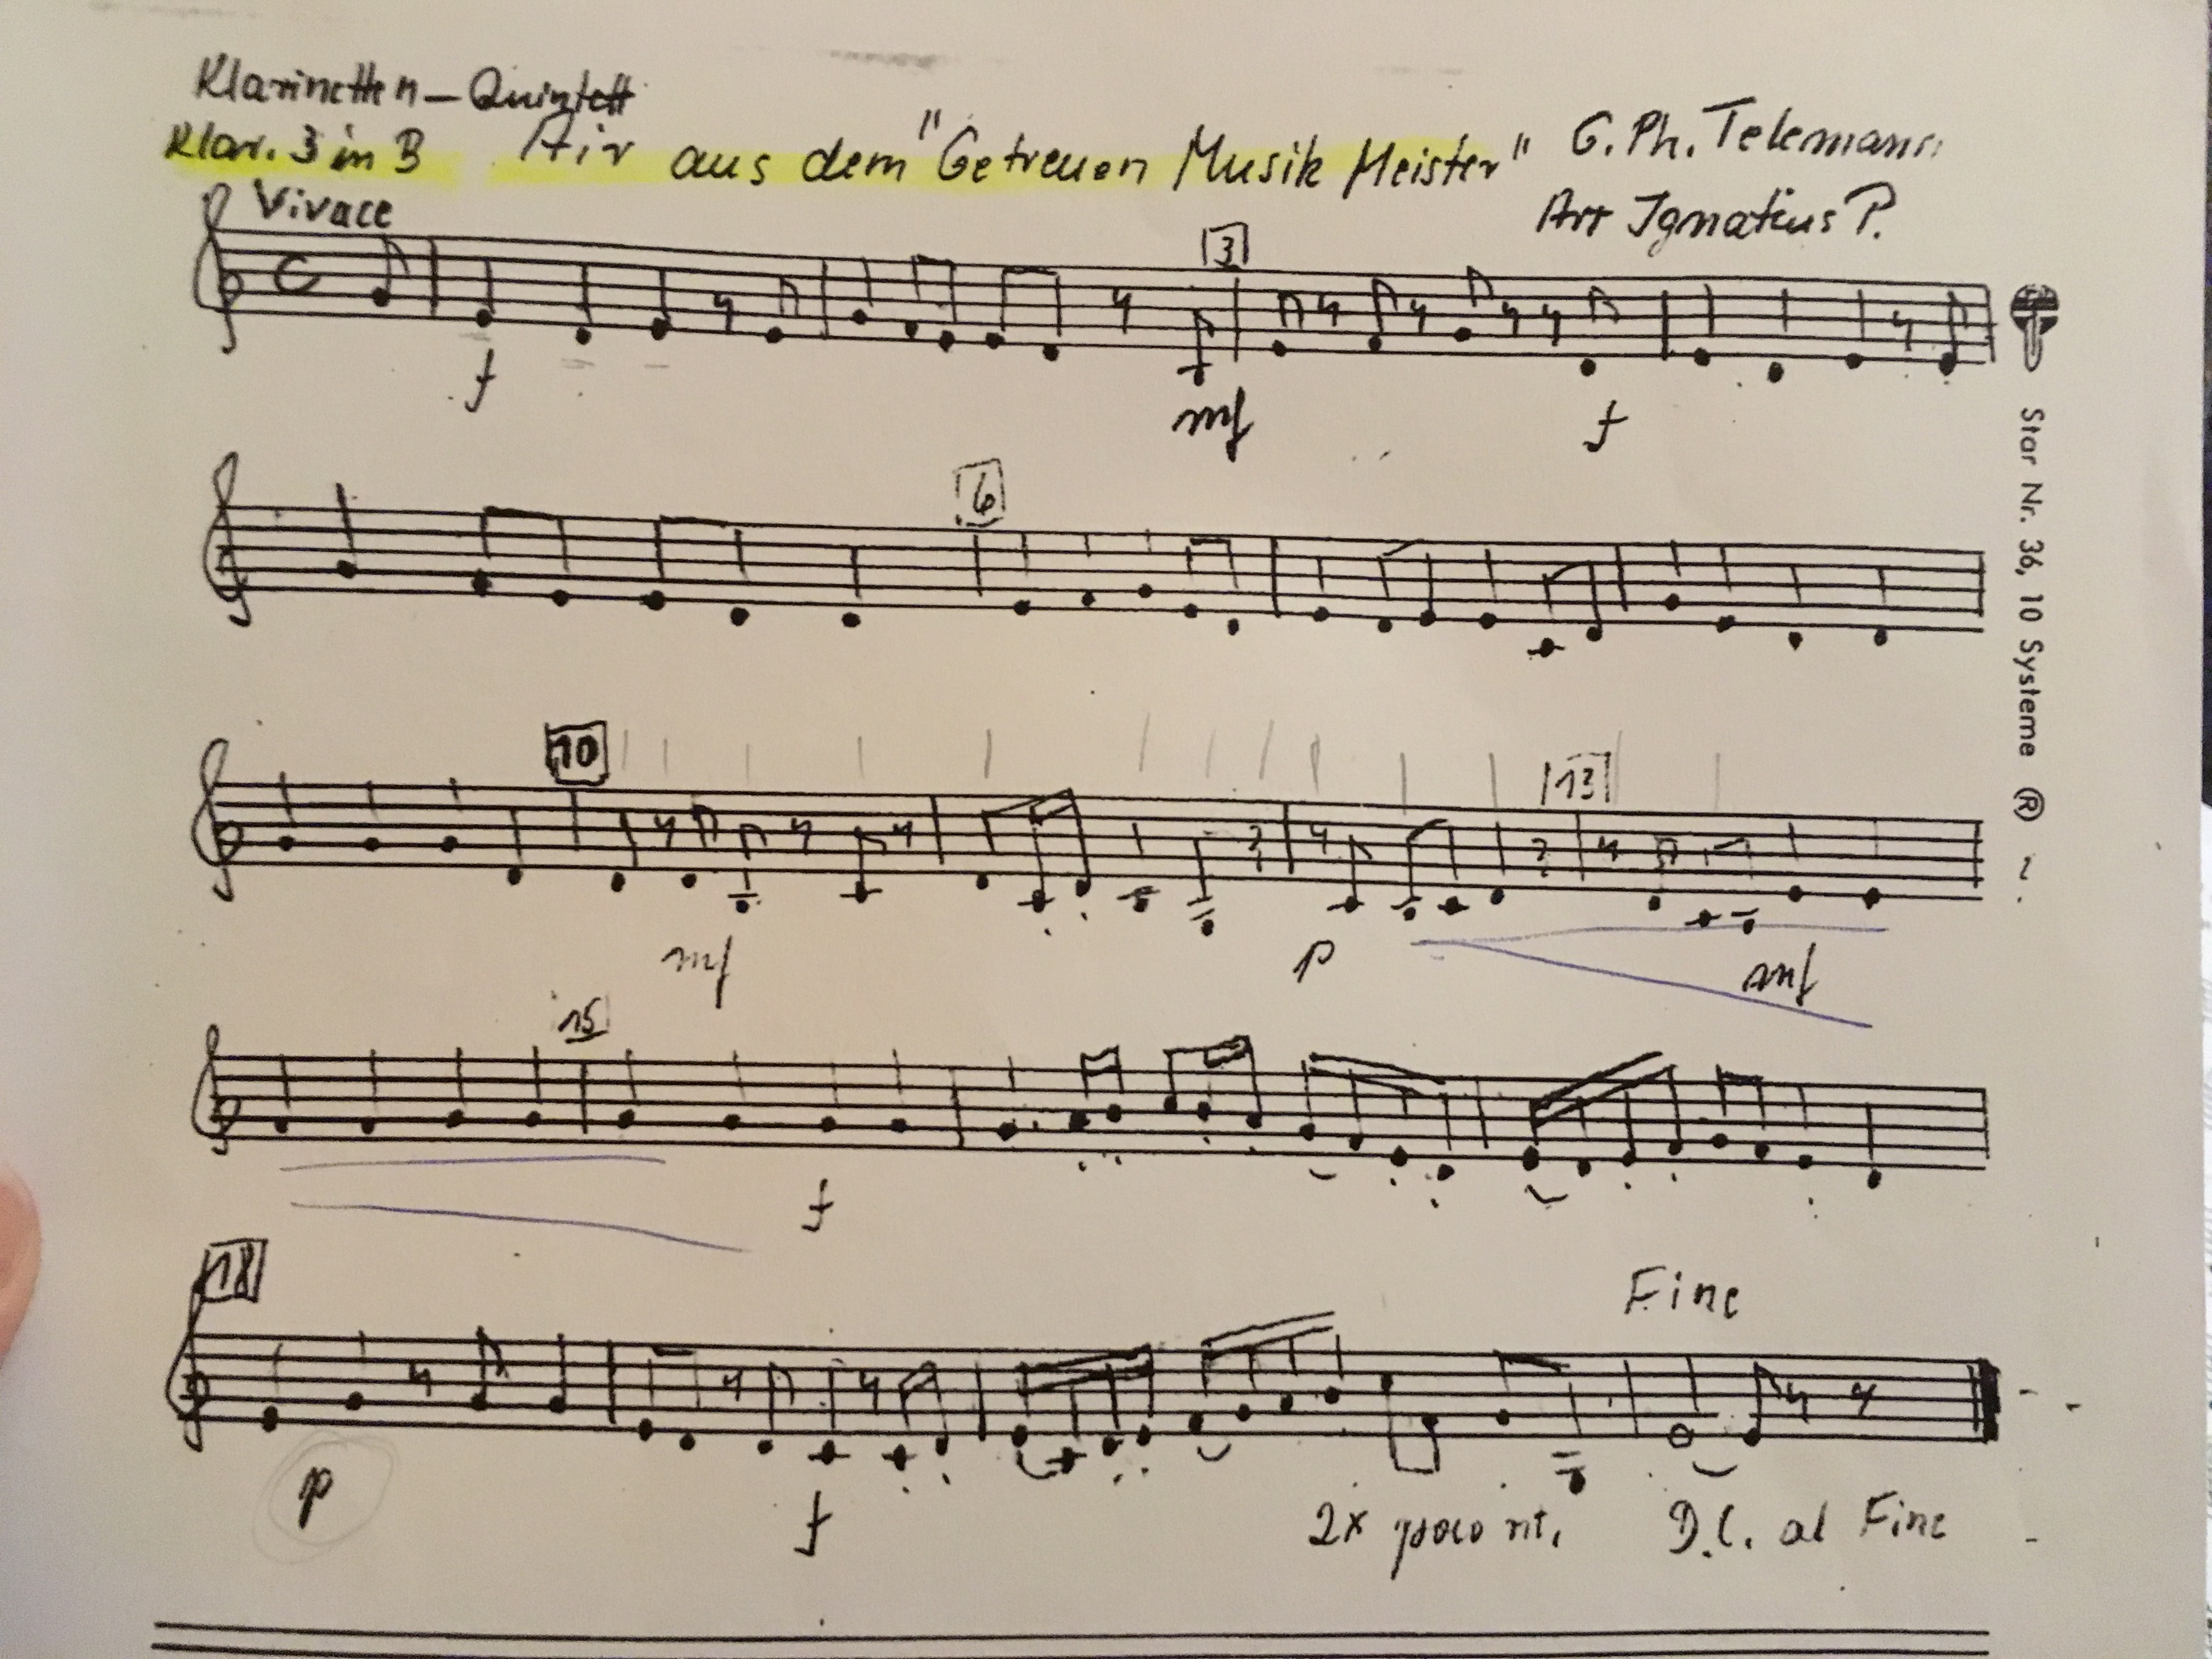 Klarinetten-Quintett
Klar. 3 in B Air aus dem "Getreuen Musik Meister" G. Ph. Telemann
Vivace Arr Ignatius P.
3
f mf f
6
10 13
mf p mf
15
f
18
Fine
p f 2x poco rit. D.C. al Fine
Star Nr. 36, 10 Systeme ®